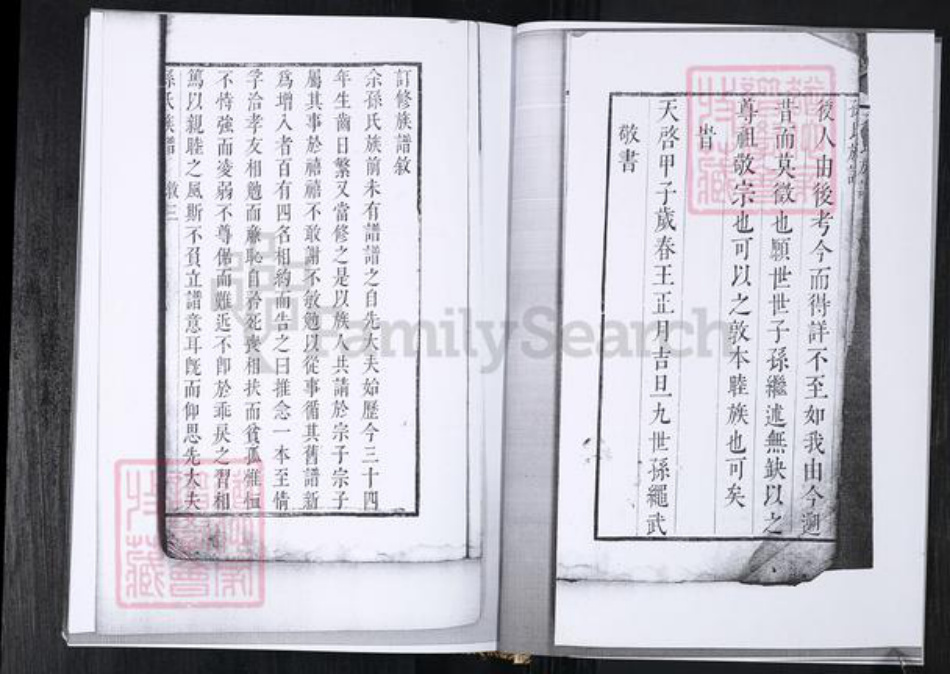 後人由後考今而得詳不至如我由今遡
昔而莫徵也願世世子孫繼述無缺以之
尊祖敬宗也可以之敦本睦族也可矣
旹
天啓甲子歲春王正月吉旦九世孫繩武
敬書
訂修族譜敘
余孫氏族前未有譜譜之自先大夫始歷今三十四
年生齒日繁又當修之是以族人共請於宗子宗子
屬其事於禧禧不敢謝不敏勉以從事循其舊譜新
爲增入者百有四名相約而告之曰推念一本至情
孚洽孝友相勉而廉恥自矜死喪相扶而貧孤惟恒
不恃強而凌弱不尊倨而難近不卽於乖戾之習相
篤以親睦之風斯不負立譜意耳旣而仰思先大夫
孫氏族譜 敘三
FamilySearch